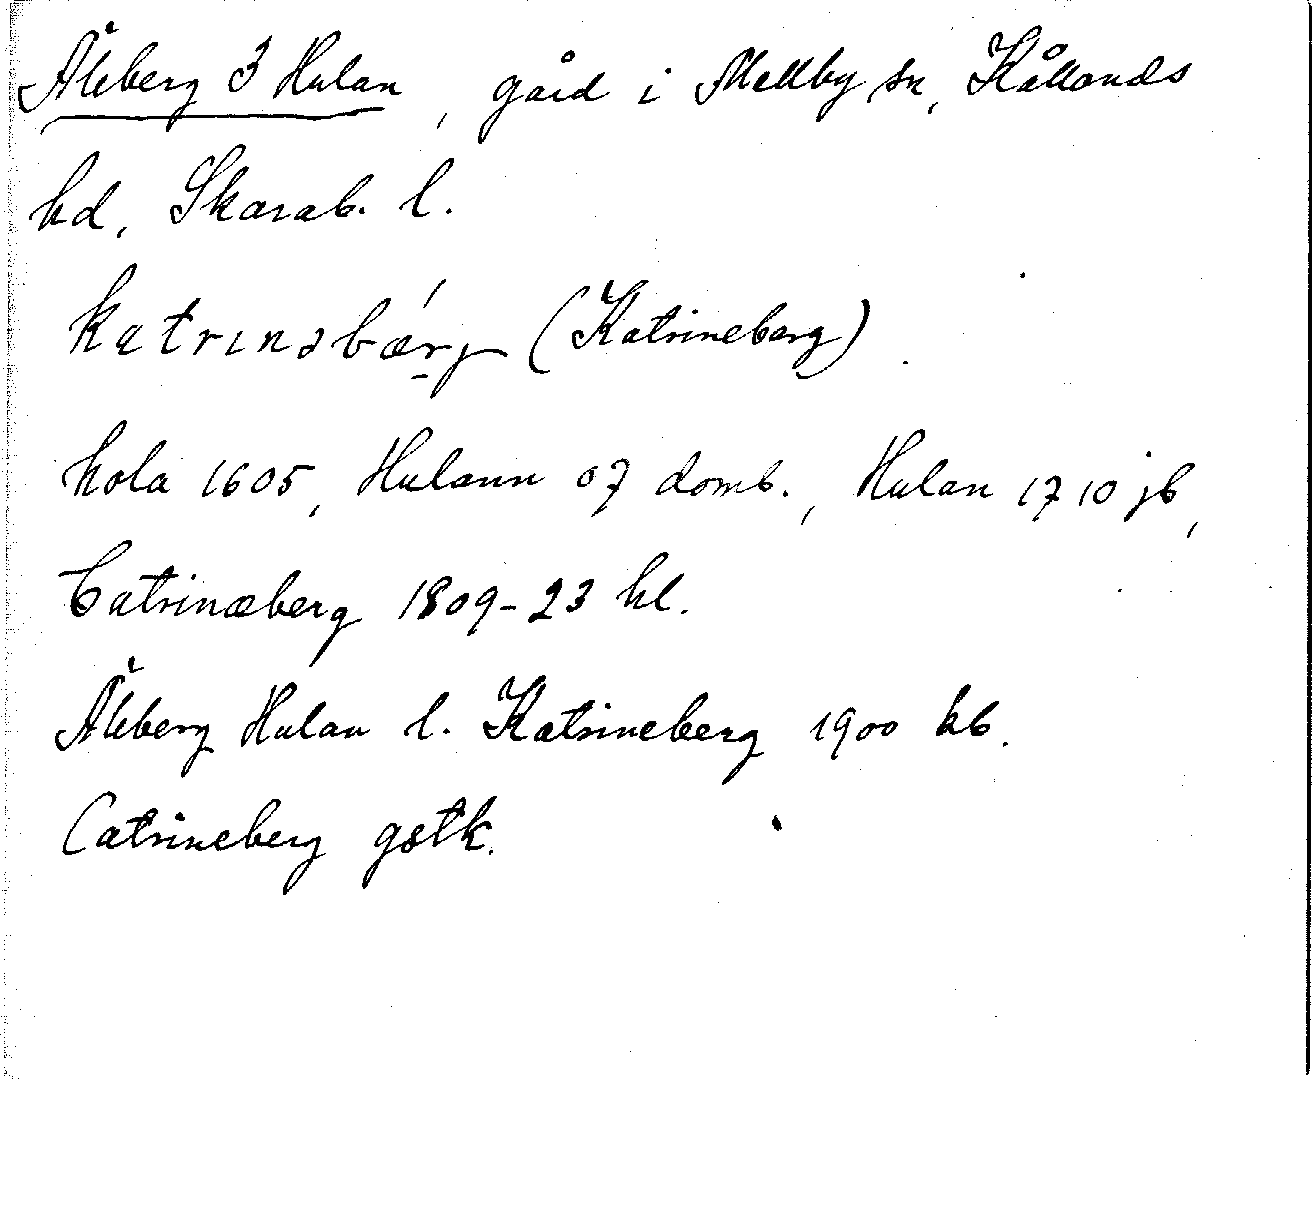 Åleberg 3 Hulan, gård i Mellby sn, Kållands
hd, Skarab. l.
katrinəbǽrj (Katrineberg)
hola 1605, Hulann 07 domb., Hulan 1710 jb,
Catrinæberg 1809-23 hl.
Åleberg Hulan l. Katrineberg 1900 hb.
Catrineberg gstk.